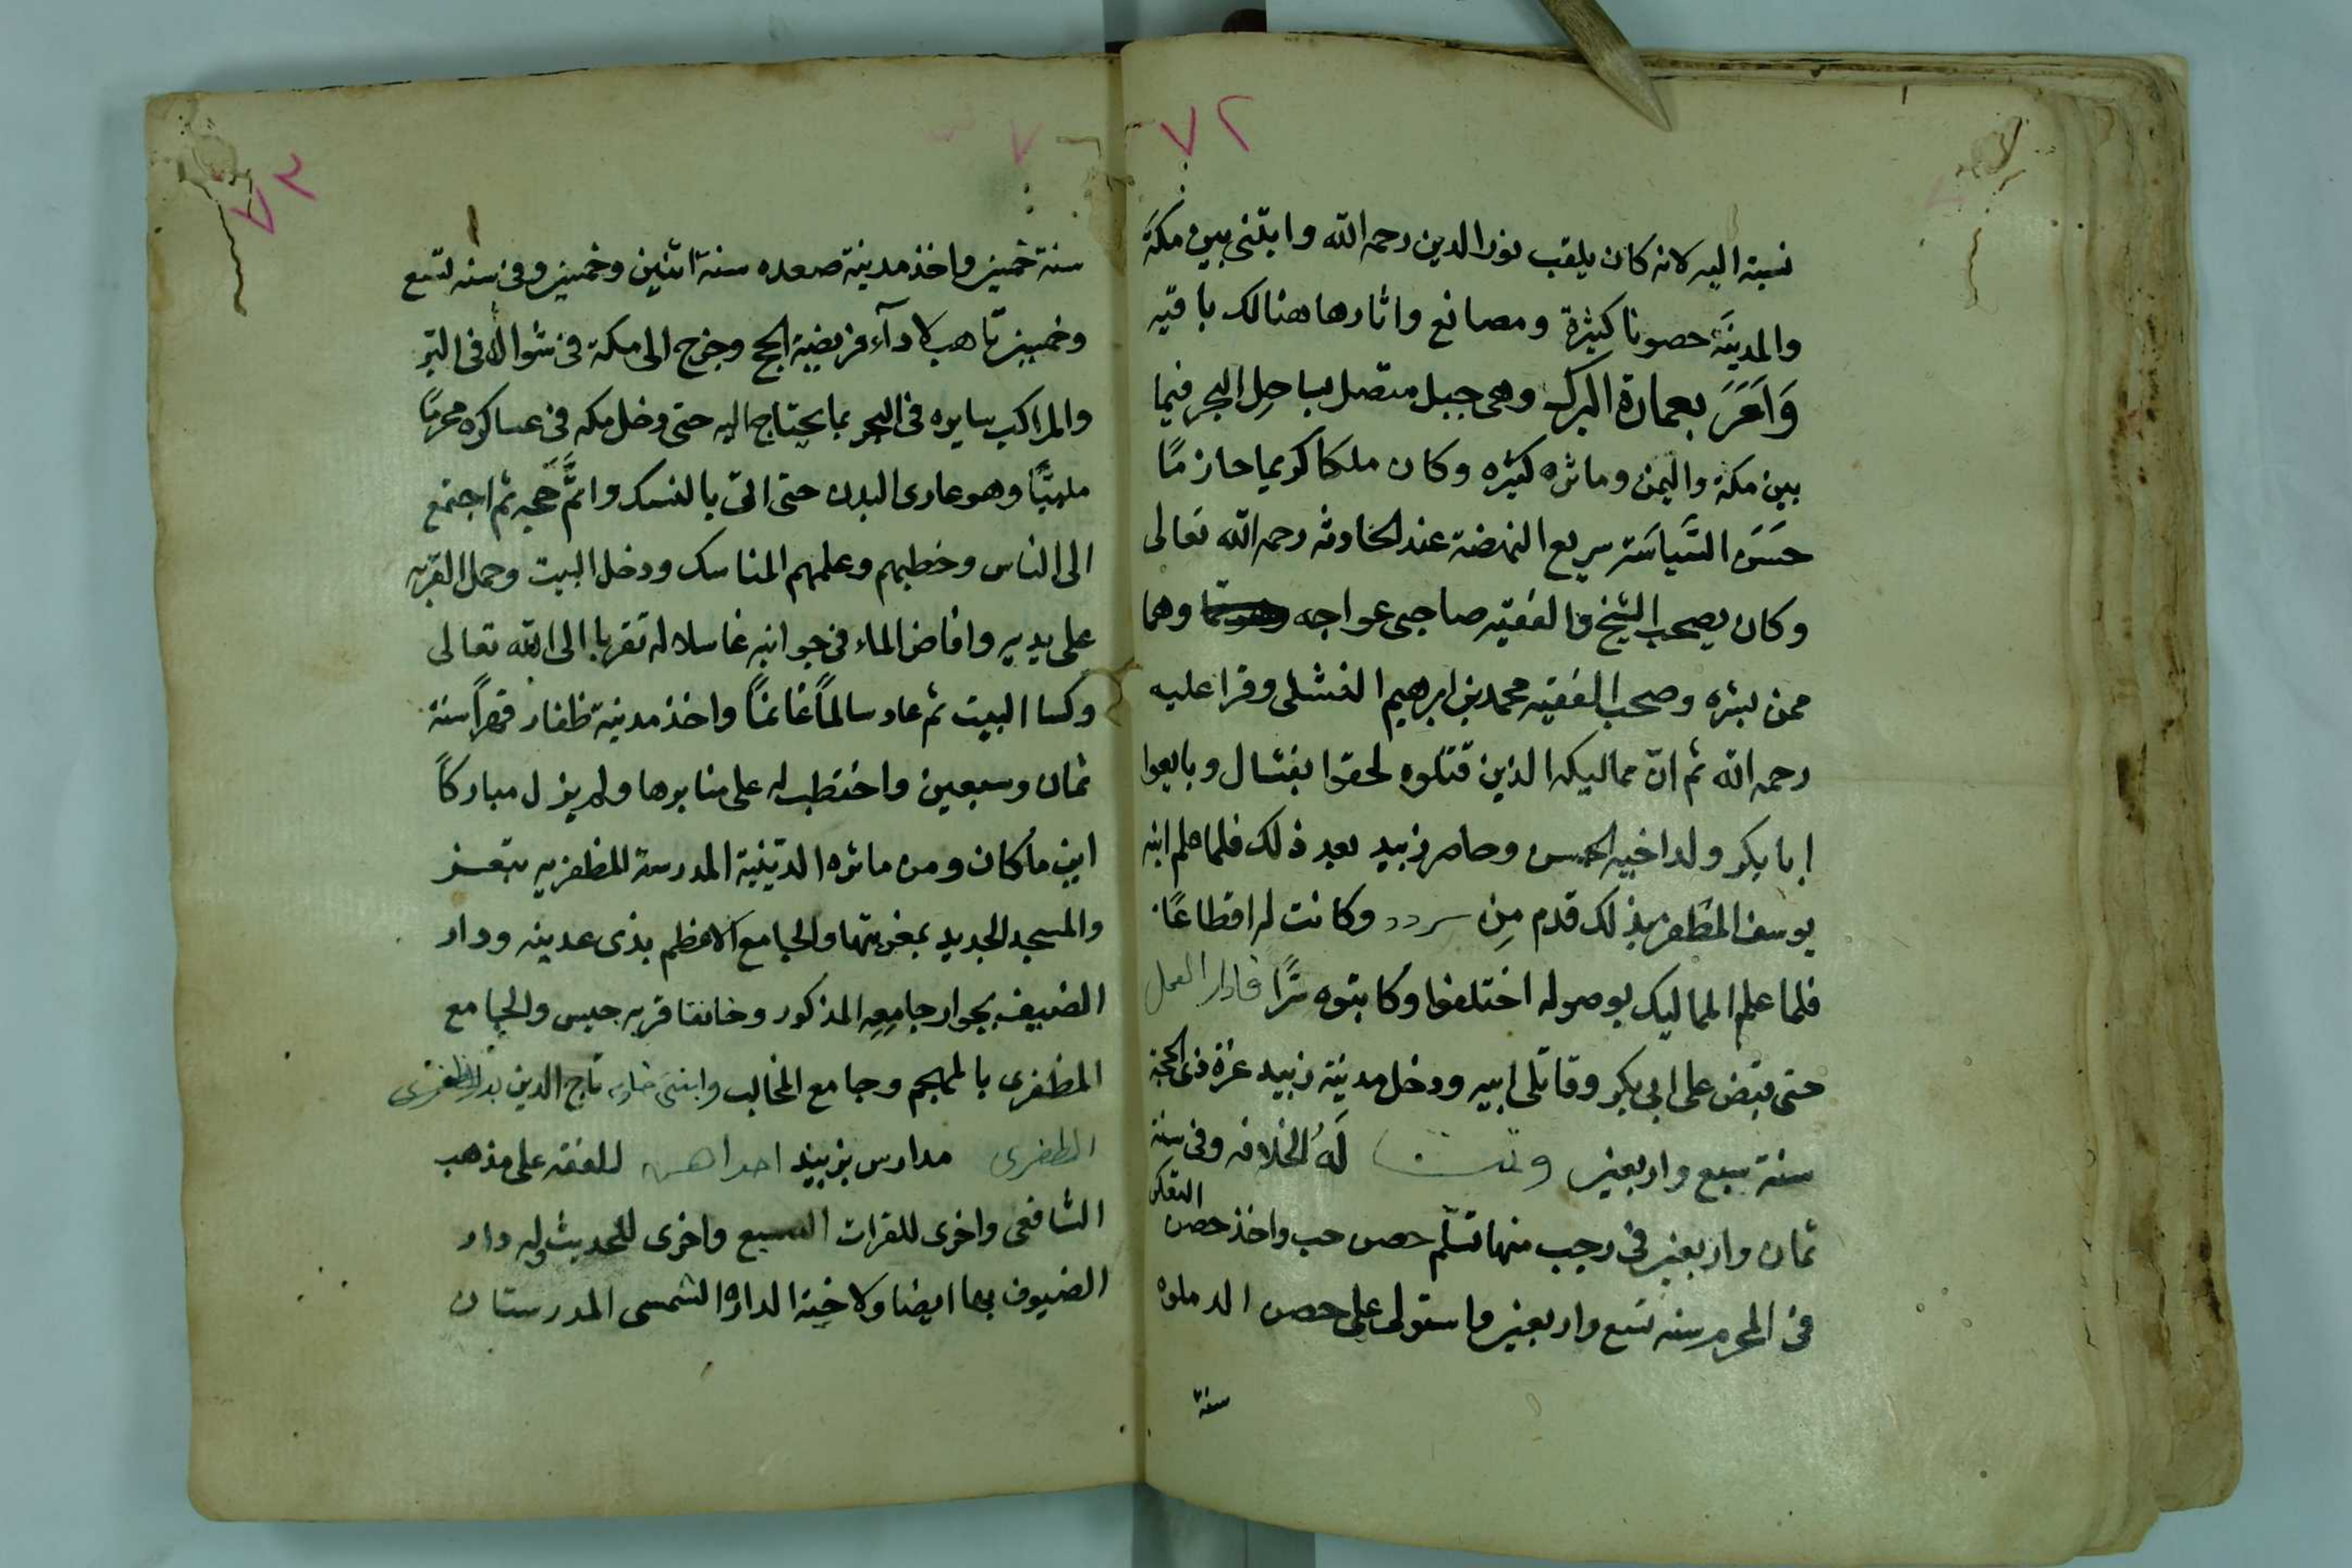 ٧٢
نسبة اليه لانه كان يلقب نور الدين رحمه الله وابتنى بين مكة
والمدينة حصونا كثيرة ومصانع واثارها هنالك باقيه
وَاَمَرَ بعمارة البرك وهى جبل متصل بساحل البحر فيما
بين مكة واليمن وماثره كثيره وكان ملكا كريما حازمًا
حسَن السَّياسَة سريع النهضة عند الحادثه رحمه الله تعالى
وكان يصحب الشيخ والفقيه صاحبى عواجه وهما
ممن بشره وصحب الفقيه محمد بن ابرهيم الفشلى وقرا عليه
رحمه الله ثم انّ مماليكه الذين قتلوه لحقوا بفشال وبايعوا
ابا بكر ولد اخيه الحسن وحاصر زبيد بعد ذلك فلما علم ابنه
يوسف المظفر بذلك قدم مِن سردد وكانت له اقطاعًا
فلما علم المماليك بوصوله اختلفوا وكاتبوه سرًّا فادار العمل
حتى قبض على ابى بكر وقاتلى ابيه ودخل مدينة زبيد غرة ذى الحجة
سنة سبع واربعين وتمت لَهُ الخلافه وفى سنة
ثمان واربعين فى رجب منها تسلّم حصن حب واخذ حصن التعكر
فى المحرم سنه تسع واربعين واستولى على حصن الدملوه
سنة
٧٣
سنة خمسين واخذ مدينة صعده سنة اثنين وخمسين وفى سنه تسع
وخمسين تاهب لادآء فريضة الحج وخرج الى مكة فى شوال فى البر
والمراكب سايره فى البحر بما يحتاج اليه حتى دخل مكه فى عساكره محرمًا
ملبيًّا وهو عارى البدن حتى اتى بالنسك واتمَّ حَجه ثم اجتمع
الى الناس وخطبهم وعلمهم المناسك ودخل البيت وحمل القربه
على يديه وافاض الماء فى جوانبه غاسلا له تقربا الى الله تعالى
وكسا البيت ثم عاد سالمًا غانمًا واخذ مدينة ظفار قهرًا سنة
ثمان وسبعين واختطب له على منابرها ولم يزل مباركًا
اين ما كان ومن ماثره الدّينية المدرسة المظفريه بتعز
والمسجد الجديد بمغربتها والجامع الاعظم بذى عدينه ودار
الضيف بجوار جامعه المذكور وخانقا قريه حيس والجامع
المظفرى بالمهجم وجامع المحالب وابتنى خادمه تاج الدين بدر المظفرى
المظفرى مدارس بزبيد احداهن للفقه على مذهب
الشافعى واخرى للقرات السبع واخرى للحديث وله دار
الضيوف بها ايضا ولاخيه الداره الشمسى المدرستان